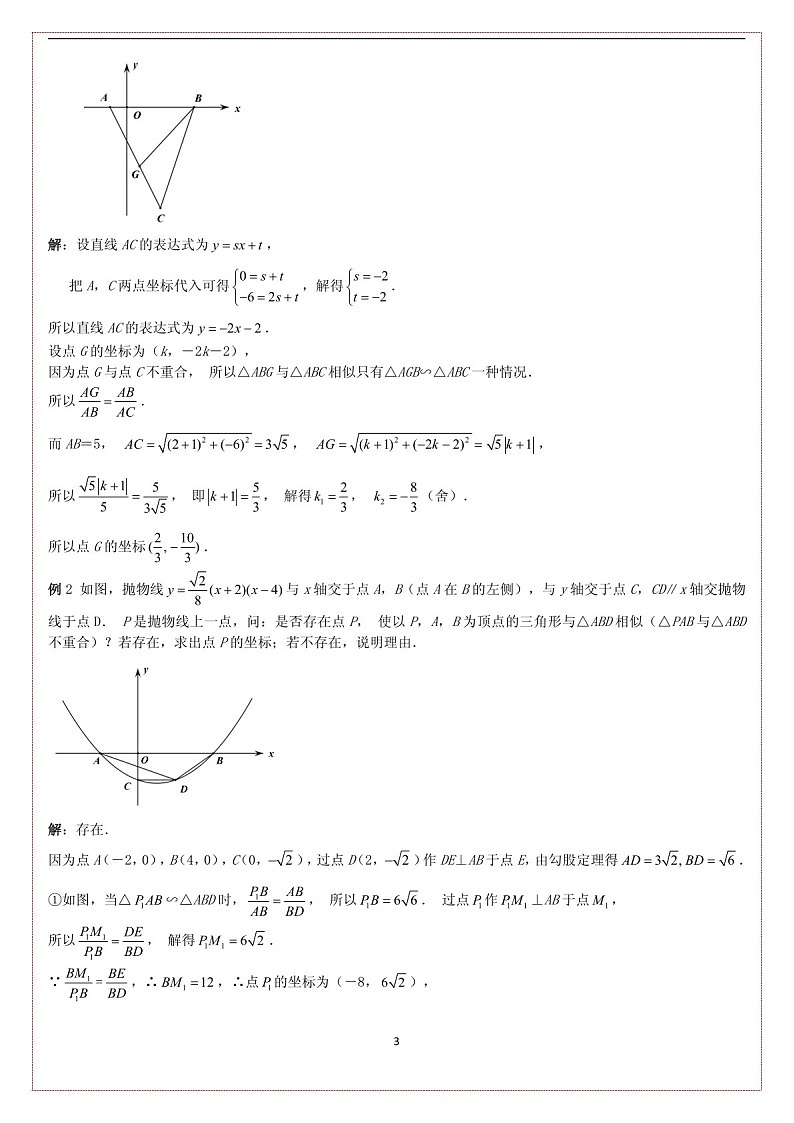 y
A
B
O
x
G
C
解：设直线 AC 的表达式为 y = sx + t，
把 A，C 两点坐标代入可得{0 = s + t -6 = 2s + t，解得{s = -2 t = -2．
所以直线 AC 的表达式为 y = -2x - 2．
设点 G 的坐标为（k，－2k－2），
因为点 G 与点 C 不重合， 所以△ABG 与△ABC 相似只有△AGB∽△ABC 一种情况．
所以 AG/AB = AB/AC．
而 AB＝5， AC = √((2+1)²+(-6)²) = 3√5， AG = √((k+1)²+(-2k-2)²) = √5|k+1|，
所以 √5|k+1|/5 = 5/(3√5)， 即|k+1| = 5/3， 解得 k₁ = 2/3， k₂ = -8/3（舍）．
所以点 G 的坐标(2/3, -10/3)．
例 2 如图，抛物线 y = √2/8 (x+2)(x-4) 与 x 轴交于点 A，B（点 A 在 B 的左侧），与 y 轴交于点 C，CD∥x 轴交抛物
线于点 D． P 是抛物线上一点，问：是否存在点 P， 使以 P，A，B 为顶点的三角形与△ABD 相似（△PAB 与△ABD
不重合）？若存在，求出点 P 的坐标；若不存在，说明理由．
y
A
O
B
x
C
D
解：存在．
因为点 A（－2，0），B（4，0），C（0，-√2），过点 D（2，-√2）作 DE⊥AB 于点 E，由勾股定理得 AD = 3√2, BD = √6．
①如图，当△P₁AB∽△ABD 时，P₁B/AB = AB/BD， 所以 P₁B = 6√6． 过点 P₁ 作 P₁M₁⊥AB 于点 M₁，
所以 P₁M₁/P₁B = DE/BD， 解得 P₁M₁ = 6√2．
∵ BM₁/P₁B = BE/BD，∴ BM₁ = 12，∴点 P₁ 的坐标为（－8，6√2），
3